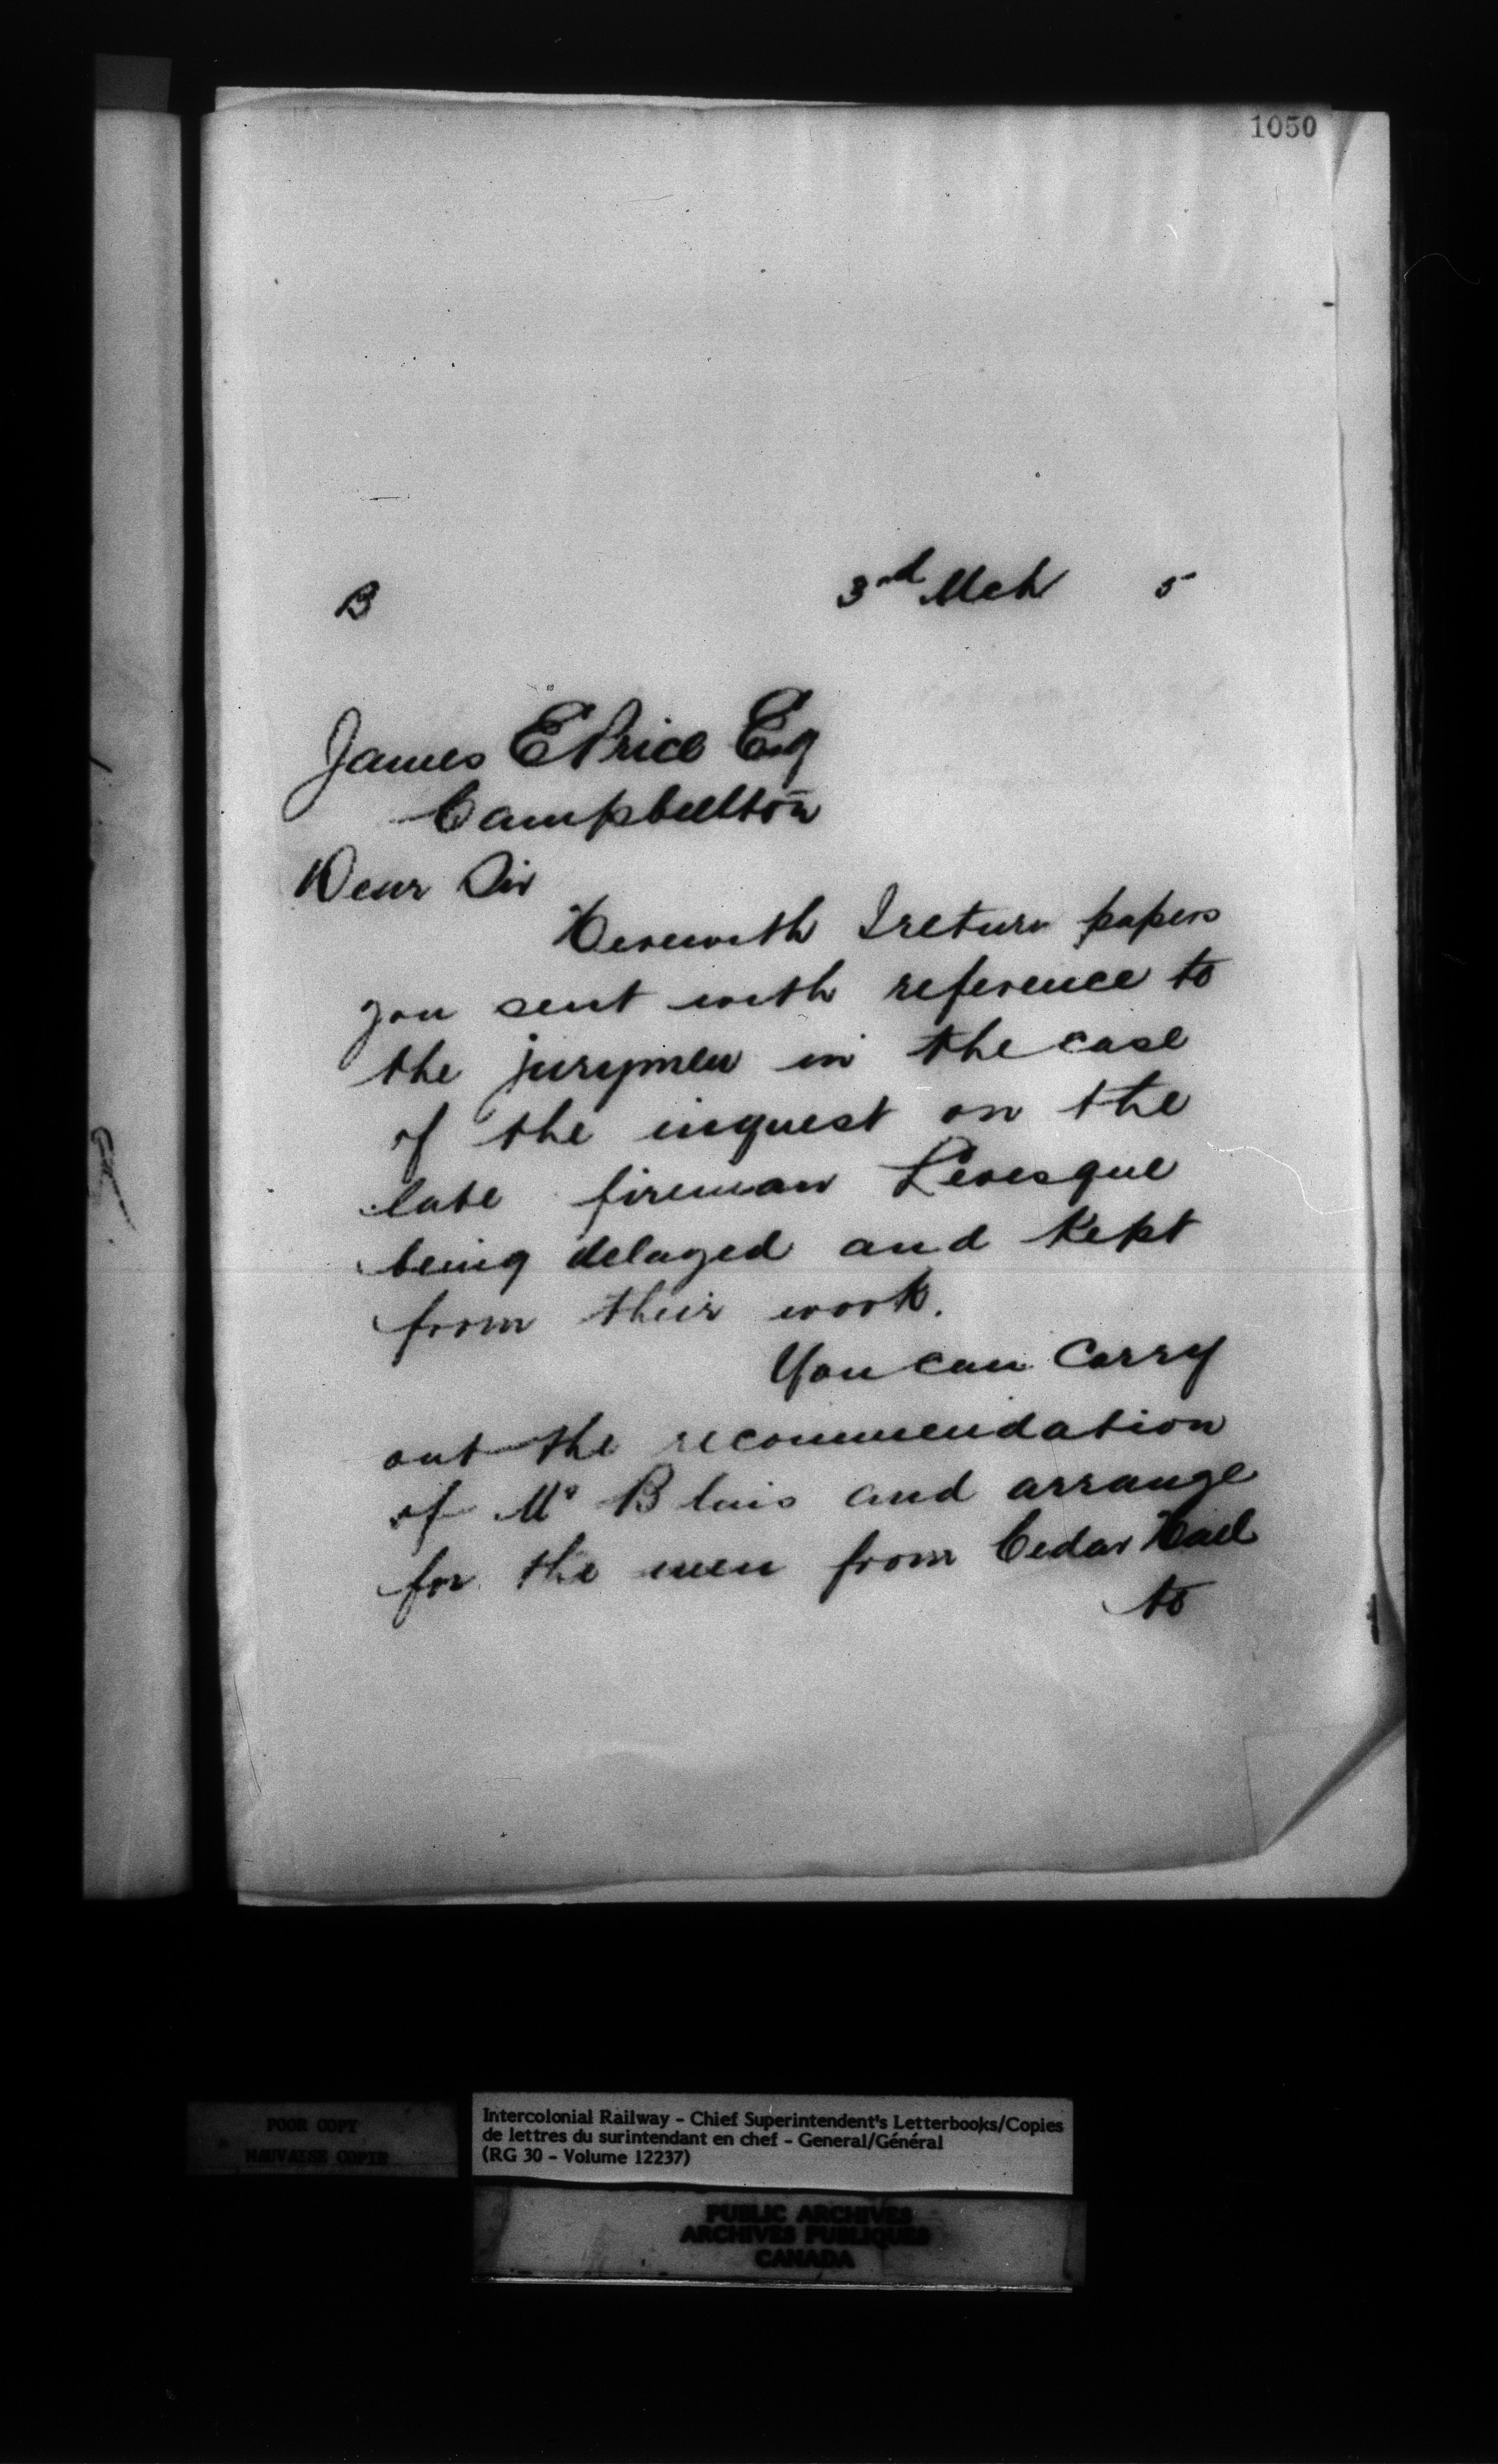 1050
B 3rd Mch 5
James E Price Esq
Campbellton
Dear Sir
Herewith I return papers
you sent with reference to
the jurymen in the case
of the inquest on the
late fireman Levesque
being delayed and kept
from their work.
You can carry
out the recommendation
of Mr Blais and arrange
for the men from Cedar Hall
to
POOR COPY
MAUVAISE COPIE
Intercolonial Railway - Chief Superintendent's Letterbooks/Copies
de lettres du surintendant en chef - General/Général
(RG 30 - Volume 12237)
PUBLIC ARCHIVES
ARCHIVES PUBLIQUES
CANADA